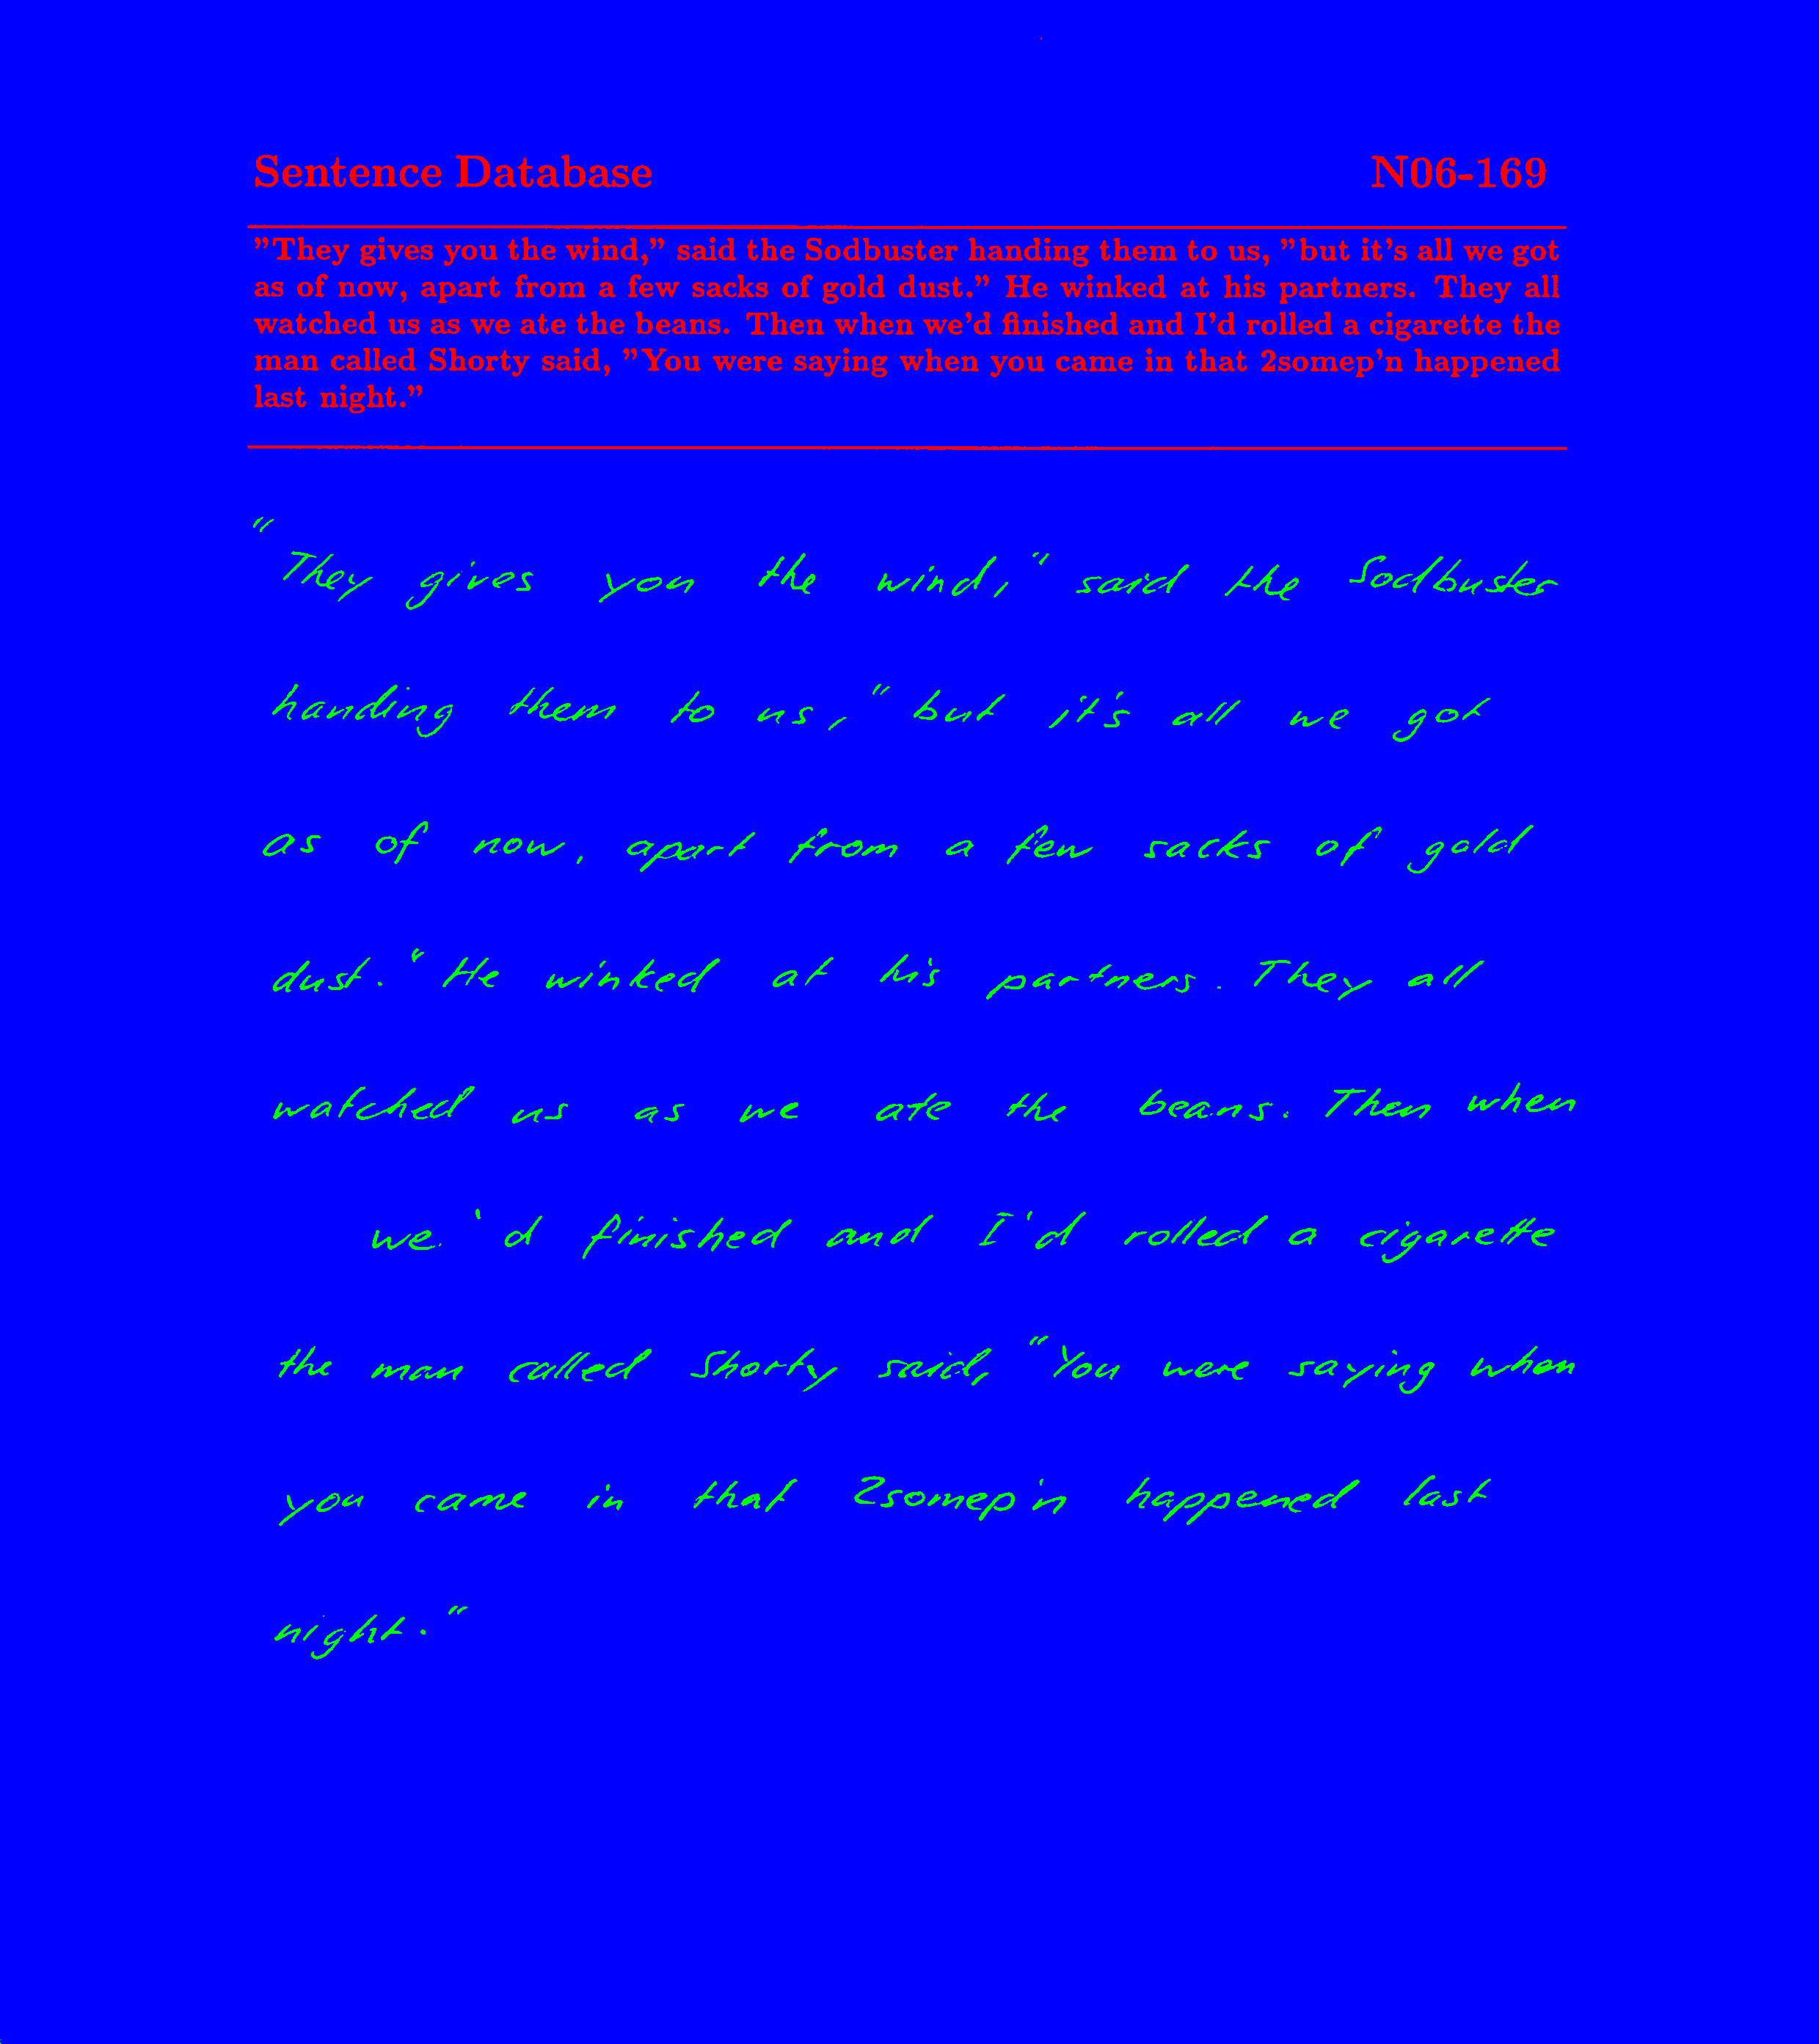 Sentence Database N06-169
"They gives you the wind," said the Sodbuster handing them to us, "but it's all we got
as of now, apart from a few sacks of gold dust." He winked at his partners. They all
watched us as we ate the beans. Then when we'd finished and I'd rolled a cigarette the
man called Shorty said, "You were saying when you came in that 2somep'n happened
last night."
"They gives you the wind," said the Sodbuster
handing them to us, "but it's all we got
as of now, apart from a few sacks of gold
dust." He winked at his partners. They all
watched us as we ate the beans. Then when
we'd finished and I'd rolled a cigarette
the man called Shorty said, "You were saying when
you came in that 2somep'n happened last
night."